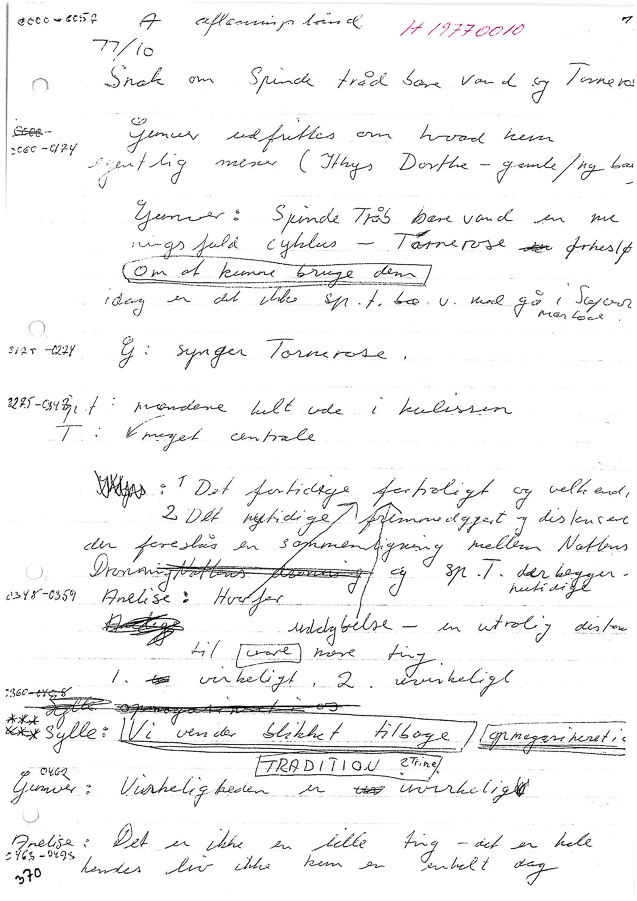 0000-0057 A aflæsningsbånd H 19770010 1
77/10
Snak om Spinde tråd bære vand og Tornerose
0060-0174 Gunver udfrittes om hvad hun
egentlig mener (Ithys Dorthe - gamle/ny
Gunver: Spinde Tråd bære vand en me
ningsfuld cyklus - Tornerose
Om at kunne bruge dem
idag er det ikke sp. t. bæ. v. med gå i
0175-0274 G: synger Tornerose.
0275-0347 sp. t: mændene helt ude i kulissen
T: meget centrale
: 1 Det fortidige fortroligt og velkendt
2 Det nutidige fremmedgjort og distancer
der foreslås en sammenligning mellem Nattens
Dronning og sp. T. der begge
nutidige
0348-0359 Anelise: Hvorfor
uddybelse - en utrolig distan
til nære ting
1. virkeligt. 2. uvirkeligt
Sylle: Vi vender blikket tilbage
TRADITION
0462
Gunver: Virkeligheden er uvirkelig
Anelise: Det er ikke en lille ting - det er hele
0463-0493
hendes liv ikke kun en enkelt dag
370